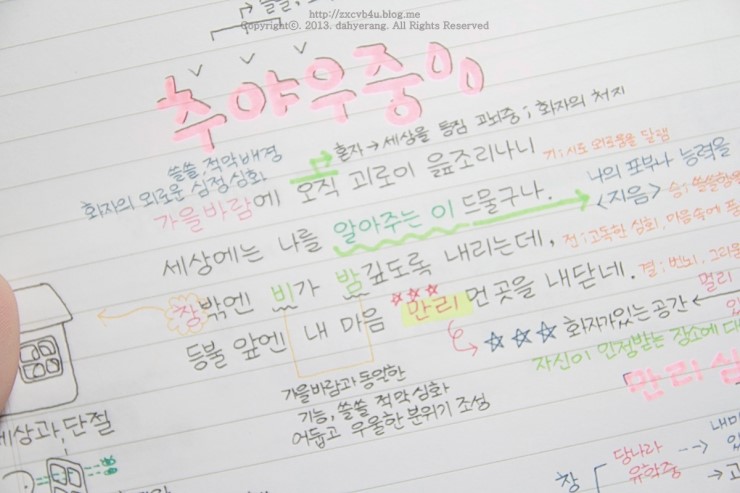 http://zxcvb4u.blog.me
Copyrightⓒ. 2013. dahyerang. All Rights Reserved
추야우중에
혼자→세상을 등짐 고뇌중 ; 화자의 처지
쓸쓸, 적막 배경
화자의 외로운 심정심화
가을바람에 오직 괴로이 읊조리나니 기 ; 시로 외로움을 달램
나의 포부나 능력을
세상에는 나를 알아주는 이 드물구나. <지음> 승 ; 쓸쓸함을
창밖엔 비가 밤 깊도록 내리는데, 전 ; 고독한 심회, 마음속에 품
등불 앞엔 내 마음 만리 먼 곳을 내닫네. 결 ; 번뇌, 그리움
멀리
☆☆☆ 화자가있는공간←
자신이 인정받는 장소에 대
만리 심
가을바람과 동일한
기능, 쓸쓸, 적막 심화
어둡고 우울한 분위기 조성
세상과, 단절
창
당나라 → 내마
유학중